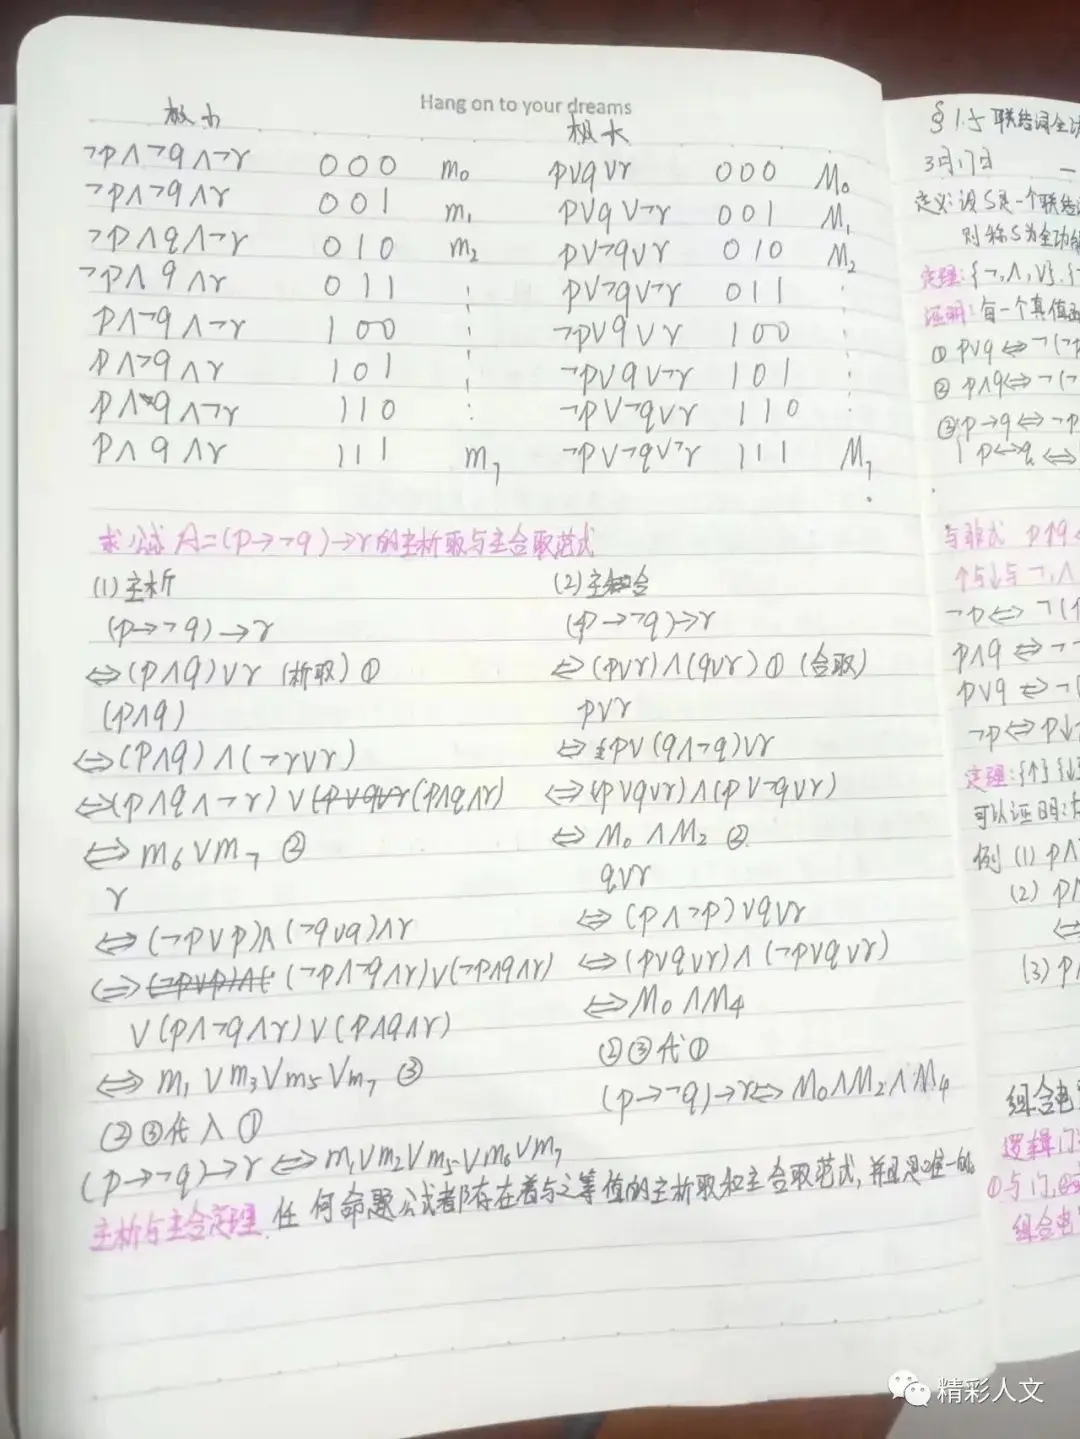 Hang on to your dreams
极小 极大
¬p∧¬q∧¬r 000 m₀ p∨q∨r 000 M₀
¬p∧¬q∧r 001 m₁ p∨q∨¬r 001 M₁
¬p∧q∧¬r 010 m₂ p∨¬q∨r 010 M₂
¬p∧q∧r 011 p∨¬q∨¬r 011
p∧¬q∧¬r 100 ¬p∨q∨r 100
p∧¬q∧r 101 ¬p∨q∨¬r 101
p∧q∧¬r 110 ¬p∨¬q∨r 110
p∧q∧r 111 m₇ ¬p∨¬q∨¬r 111 M₇
求公式 A=(p→¬q)→r的主析取与主合取范式
(1)主析
(p→¬q)→r
⇔(p∧q)∨r (析取) ①
(p∧q)
⇔(p∧q)∧(¬r∨r)
⇔(p∧q∧¬r)∨(p∧q∧r)
⇔m₆∨m₇ ②
r
⇔(¬p∨p)∧(¬q∨q)∧r
⇔(¬p∧¬q∧r)∨(¬p∧q∧r)
∨(p∧¬q∧r)∨(p∧q∧r)
⇔m₁∨m₃∨m₅∨m₇ ③
②③代入①
(p→¬q)→r⇔m₁∨m₂∨m₅∨m₆∨m₇
(2)主合
(p→¬q)→r
⇔(p∨r)∧(q∨r)① (合取)
p∨r
⇔p∨(q∧¬q)∨r
⇔(p∨q∨r)∧(p∨¬q∨r)
⇔M₀∧M₂ ②
q∨r
⇔(p∧¬p)∨q∨r
⇔(p∨q∨r)∧(¬p∨q∨r)
⇔M₀∧M₄
②③代①
(p→¬q)→r⇔M₀∧M₂∧M₄
主析与主合定理.任何命题公式都存在着与之等值的主析取和主合取范式,并且是唯一的
§1.5 联结词全功
3月17日
定义:设S是一个联结
则称S为全功能
定理:{¬,∧,∨}.{¬
证明:每一个真值函
①p∨q⇔¬(¬p
②p∧q⇔¬(¬
③p→q⇔¬p
p↔q⇔
与非式 p↑q⇔
↑与↓与¬,∧
¬p⇔¬(
p∧q⇔¬
p∨q⇔¬(
¬p⇔p↓
定理:{↑}{↓}
可以证明:
例(1)p∧
(2)p∧
⇔
(3)p∧
组合电
逻辑门
①与门,
组合电
精彩人文